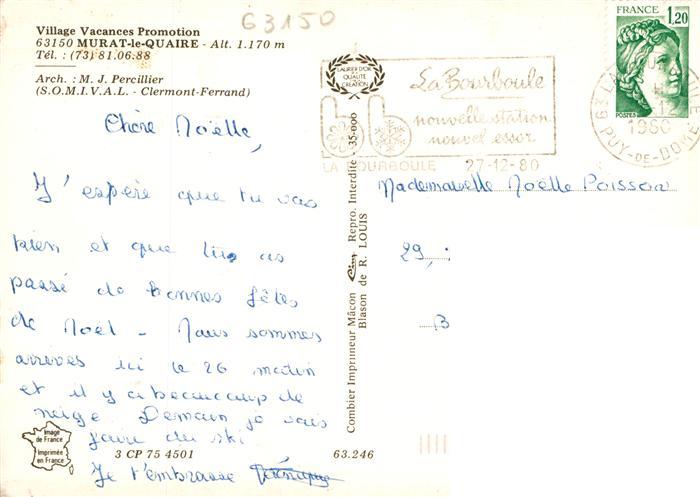 63150
Village Vacances Promotion
63150 MURAT-le-QUAIRE - Alt. 1.170 m
Tél. : (73) 81.06.88
Arch. : M. J. Percillier
(S.O.M.I.V.A.L. - Clermont-Ferrand)
Chère Noëlle,
J'espère que tu vas
bien et que tu as
passé de bonnes fêtes
de Noël - Nous sommes
arrivés ici le 26 matin
et il y a beaucoup de
neige. Demain je vais
faire du ski
Je t'embrasse Véronique
Image
de France
Imprimée
en France
3 CP 75 4501
63.246
Combier Imprimeur Mâcon Cim Repro. Interdite - 35-000
Blason de R. LOUIS
LAURIER D'OR
DE
QUALITÉ
CRÉATION
La Bourboule
nouvelle station
nouvel essor
LA BOURBOULE 27-12-80
FRANCE
1,20
POSTES
63
1980
PUY-DE-DOME
Mademoiselle Noëlle Poisson
29,
13